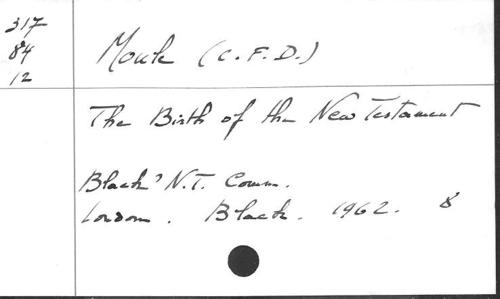 317
84
12
Moule (C.F.D.)
The Birth of the New Testament
Black' N.T. Comm.
London. Black. 1962. 8